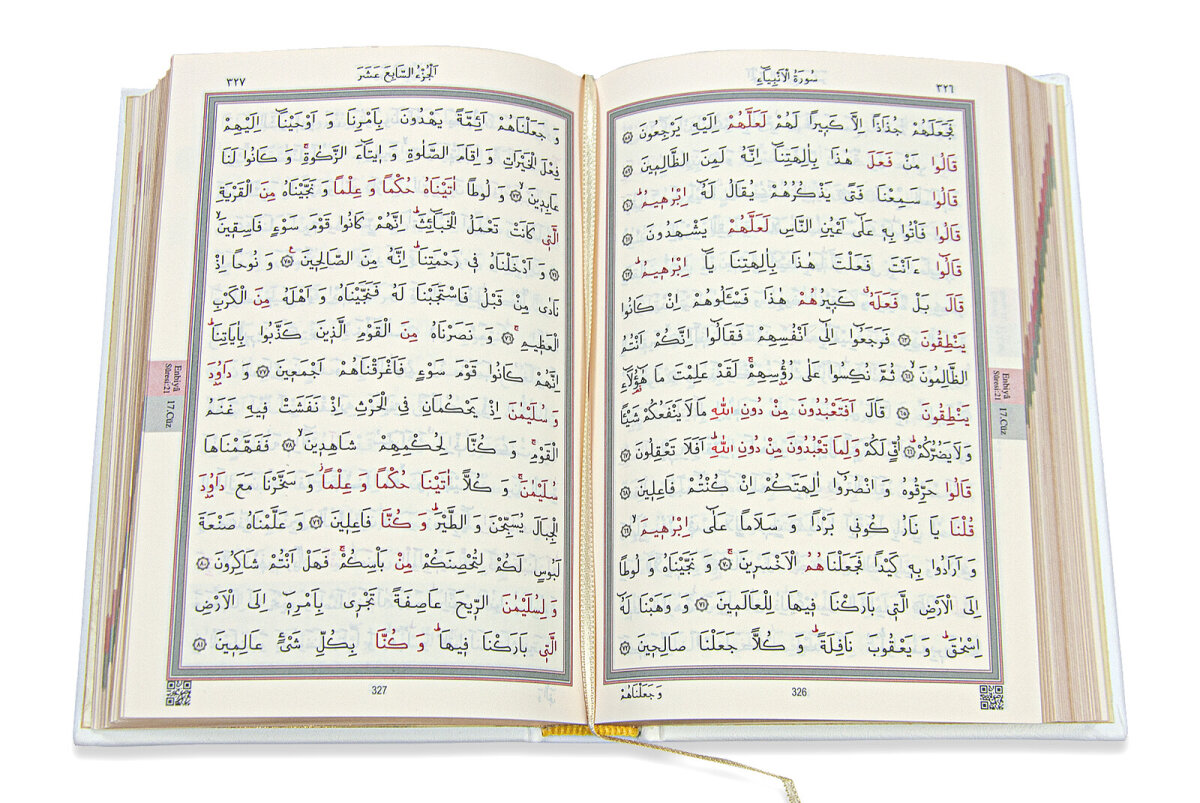 سُورَةُ الْاَنْبِيَاءِ
٣٢٦
فَجَعَلَهُمْ جُذَاذاً اِلَّا كَبِيراً لَهُمْ لَعَلَّهُمْ اِلَيْهِ يَرْجِعُونَ ﴿٥٨﴾
قَالُوا مَنْ فَعَلَ هٰذَا بِاٰلِهَتِنَا اِنَّهُ لَمِنَ الظَّالِمِينَ ﴿٥٩﴾
قَالُوا سَمِعْنَا فَتًى يَذْكُرُهُمْ يُقَالُ لَهُ اِبْرٰهِيمُ ﴿٦٠﴾
قَالُوا فَأْتُوا بِهِ عَلٰى اَعْيُنِ النَّاسِ لَعَلَّهُمْ يَشْهَدُونَ ﴿٦١﴾
قَالُوا ءَاَنْتَ فَعَلْتَ هٰذَا بِاٰلِهَتِنَا يَا اِبْرٰهِيمُ ﴿٦٢﴾
قَالَ بَلْ فَعَلَهُ كَبِيرُهُمْ هٰذَا فَسْـَٔلُوهُمْ اِنْ كَانُوا
يَنْطِقُونَ ﴿٦٣﴾ فَرَجَعُوا اِلٰى اَنْفُسِهِمْ فَقَالُوا اِنَّكُمْ اَنْتُمُ
الظَّالِمُونَ ﴿٦٤﴾ ثُمَّ نُكِسُوا عَلٰى رُؤُسِهِمْ لَقَدْ عَلِمْتَ مَا هٰؤُلَاءِ
يَنْطِقُونَ ﴿٦٥﴾ قَالَ اَفَتَعْبُدُونَ مِنْ دُونِ اللّٰهِ مَا لَا يَنْفَعُكُمْ شَيْـًٔا
وَلَا يَضُرُّكُمْ ﴿٦٦﴾ اُفٍّ لَكُمْ وَلِمَا تَعْبُدُونَ مِنْ دُونِ اللّٰهِ اَفَلَا تَعْقِلُونَ ﴿٦٧﴾
قَالُوا حَرِّقُوهُ وَ انْصُرُوا اٰلِهَتَكُمْ اِنْ كُنْتُمْ فَاعِلِينَ ﴿٦٨﴾
قُلْنَا يَا نَارُ كُونِي بَرْداً وَ سَلَاماً عَلٰى اِبْرٰهِيمَ ﴿٦٩﴾
وَ اَرَادُوا بِهِ كَيْداً فَجَعَلْنَاهُمُ الْاَخْسَرِينَ ﴿٧٠﴾ وَ نَجَّيْنَاهُ وَ لُوطاً
اِلَى الْاَرْضِ الَّتِي بَارَكْنَا فِيهَا لِلْعَالَمِينَ ﴿٧١﴾ وَ وَهَبْنَا لَهُ
اِسْحٰقَ وَ يَعْقُوبَ نَافِلَةً وَ كُلًّا جَعَلْنَا صَالِحِينَ ﴿٧٢﴾
وَجَعَلْنَاهُمْ
326
Enbiyâ
Sûresi:21
17.Cüz
اَلْجُزْءُ السَّابِعَ عَشَرَ
٣٢٧
وَ جَعَلْنَاهُمْ اَئِمَّةً يَهْدُونَ بِاَمْرِنَا وَ اَوْحَيْنَا اِلَيْهِمْ
فِعْلَ الْخَيْرَاتِ وَ اِقَامَ الصَّلٰوةِ وَ اِيتَاءَ الزَّكٰوةِ وَ كَانُوا لَنَا
عَابِدِينَ ﴿٧٣﴾ وَ لُوطاً اٰتَيْنَاهُ حُكْماً وَ عِلْماً وَ نَجَّيْنَاهُ مِنَ الْقَرْيَةِ
الَّتِي كَانَتْ تَعْمَلُ الْخَبَائِثَ اِنَّهُمْ كَانُوا قَوْمَ سَوْءٍ فَاسِقِينَ
﴿٧٤﴾ وَ اَدْخَلْنَاهُ فِي رَحْمَتِنَا اِنَّهُ مِنَ الصَّالِحِينَ ﴿٧٥﴾ وَ نُوحاً اِذْ
نَادٰى مِنْ قَبْلُ فَاسْتَجَبْنَا لَهُ فَنَجَّيْنَاهُ وَ اَهْلَهُ مِنَ الْكَرْبِ
الْعَظِيمِ ﴿٧٦﴾ وَ نَصَرْنَاهُ مِنَ الْقَوْمِ الَّذِينَ كَذَّبُوا بِاٰيَاتِنَا
اِنَّهُمْ كَانُوا قَوْمَ سَوْءٍ فَاَغْرَقْنَاهُمْ اَجْمَعِينَ ﴿٧٧﴾ وَ دَاوُدَ
وَ سُلَيْمٰنَ اِذْ يَحْكُمَانِ فِي الْحَرْثِ اِذْ نَفَشَتْ فِيهِ غَنَمُ
الْقَوْمِ وَ كُنَّا لِحُكْمِهِمْ شَاهِدِينَ ﴿٧٨﴾ فَفَهَّمْنَاهَا
سُلَيْمٰنَ وَ كُلًّا اٰتَيْنَا حُكْماً وَ عِلْماً وَ سَخَّرْنَا مَعَ دَاوُدَ
الْجِبَالَ يُسَبِّحْنَ وَ الطَّيْرَ وَ كُنَّا فَاعِلِينَ ﴿٧٩﴾ وَ عَلَّمْنَاهُ صَنْعَةَ
لَبُوسٍ لَكُمْ لِتُحْصِنَكُمْ مِنْ بَأْسِكُمْ فَهَلْ اَنْتُمْ شَاكِرُونَ ﴿٨٠﴾
وَ لِسُلَيْمٰنَ الرِّيحَ عَاصِفَةً تَجْرِي بِاَمْرِهِ اِلَى الْاَرْضِ
الَّتِي بَارَكْنَا فِيهَا وَ كُنَّا بِكُلِّ شَيْءٍ عَالِمِينَ ﴿٨١﴾
327
Enbiyâ
Sûresi:21
17.Cüz